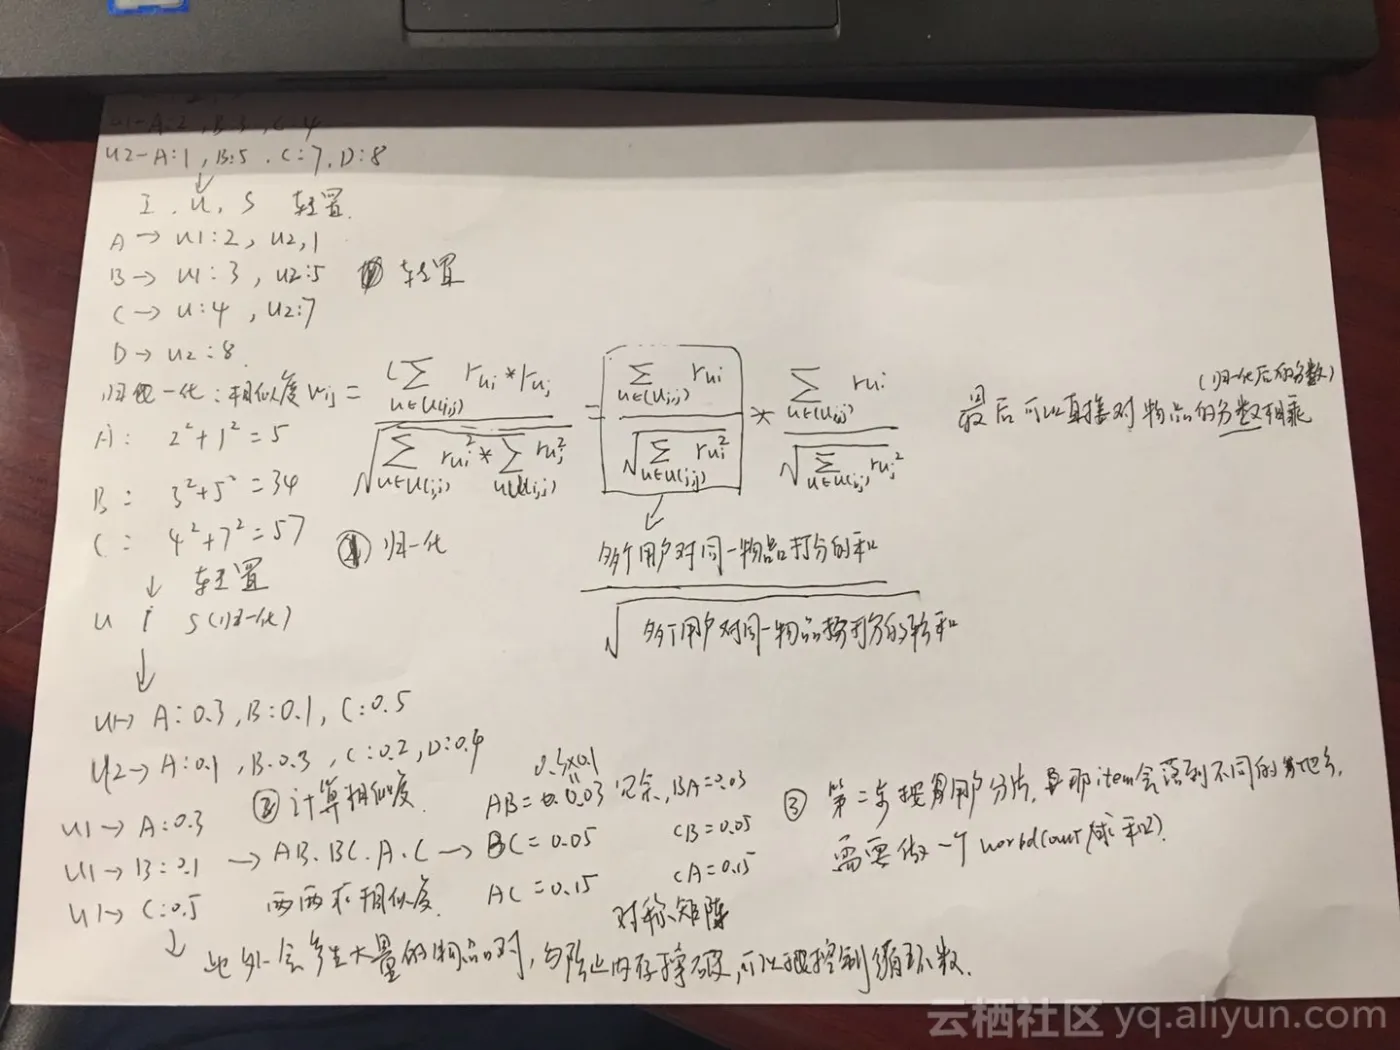 U1-A:2, B:3, C:4
U2-A:1, B:5, C:7, D:8
↓
I, U, S 转置
A → U1:2, U2,1
B → U1:3, U2:5 转置
C → U:4, U2:7
D → U2:8
归一化:相似度 Wij = (∑u∈U(i,j) rui * ruj / √(∑u∈U(i,j) rui² * ∑u∈U(i,j) ruj²) = ∑u∈(Ui,j) rui / √∑u∈U(i,j) rui² * ∑u∈(Ui,j) rui / √∑u∈U(i,j) ruj²
(归一化后的分数)
最后可以直接对物品的分数相乘
A: 2²+1²=5
B: 3²+5²=34
C: 4²+7²=57
① 归一化
↓ 转置
U i S(归一化)
↓
多个用户对同一物品打分的和
√多个用户对同一物品打分的平方和
U1→ A:0.3, B:0.1, C:0.5
U2→ A:0.1, B:0.3, C:0.2, D:0.4
② 计算相似度
U1 → A:0.3
U1 → B:0.1 → AB.BC.A.C →
U1 → C:0.5 两两求相似度
0.3x0.1
AB = 0.03 冗余, BA=0.03
BC = 0.05 CB=0.05
AC = 0.15 CA=0.15
对称矩阵
③ 第二步按用户分片, item会落到不同的地方,
需要做一个 worldCount(求和).
↓ 此外会产生大量的物品对, 为防止内存撑破, 可以控制循环数.
云栖社区 yq.aliyun.com